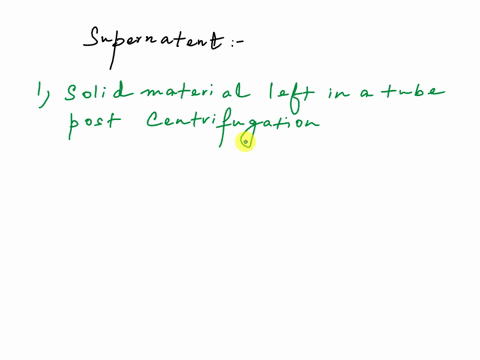 Supernatent :-
1, Solid material left in a tube
post Centrifugation